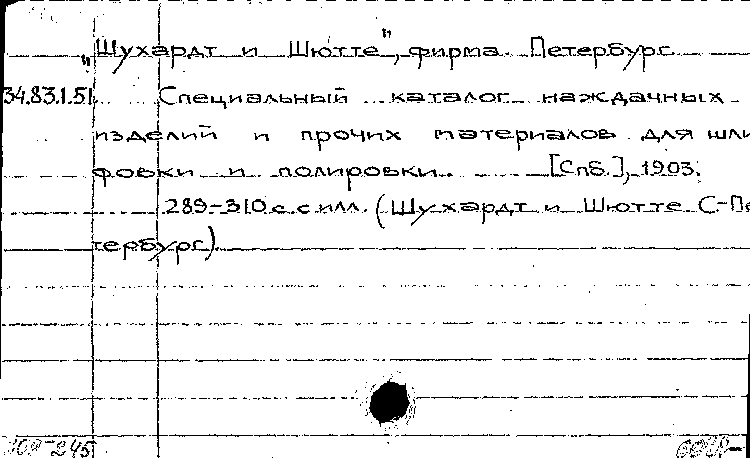 "Шухардт и Шютте", фирма. Петербург.
34.83.1.51 Специальный каталог наждачных
изделий и прочих материалов для шли-
фовки и полировки. [Спб.], 1903.
289-310 с. с илл. (Шухардт и Шютте С-Пе-
тербург)
245